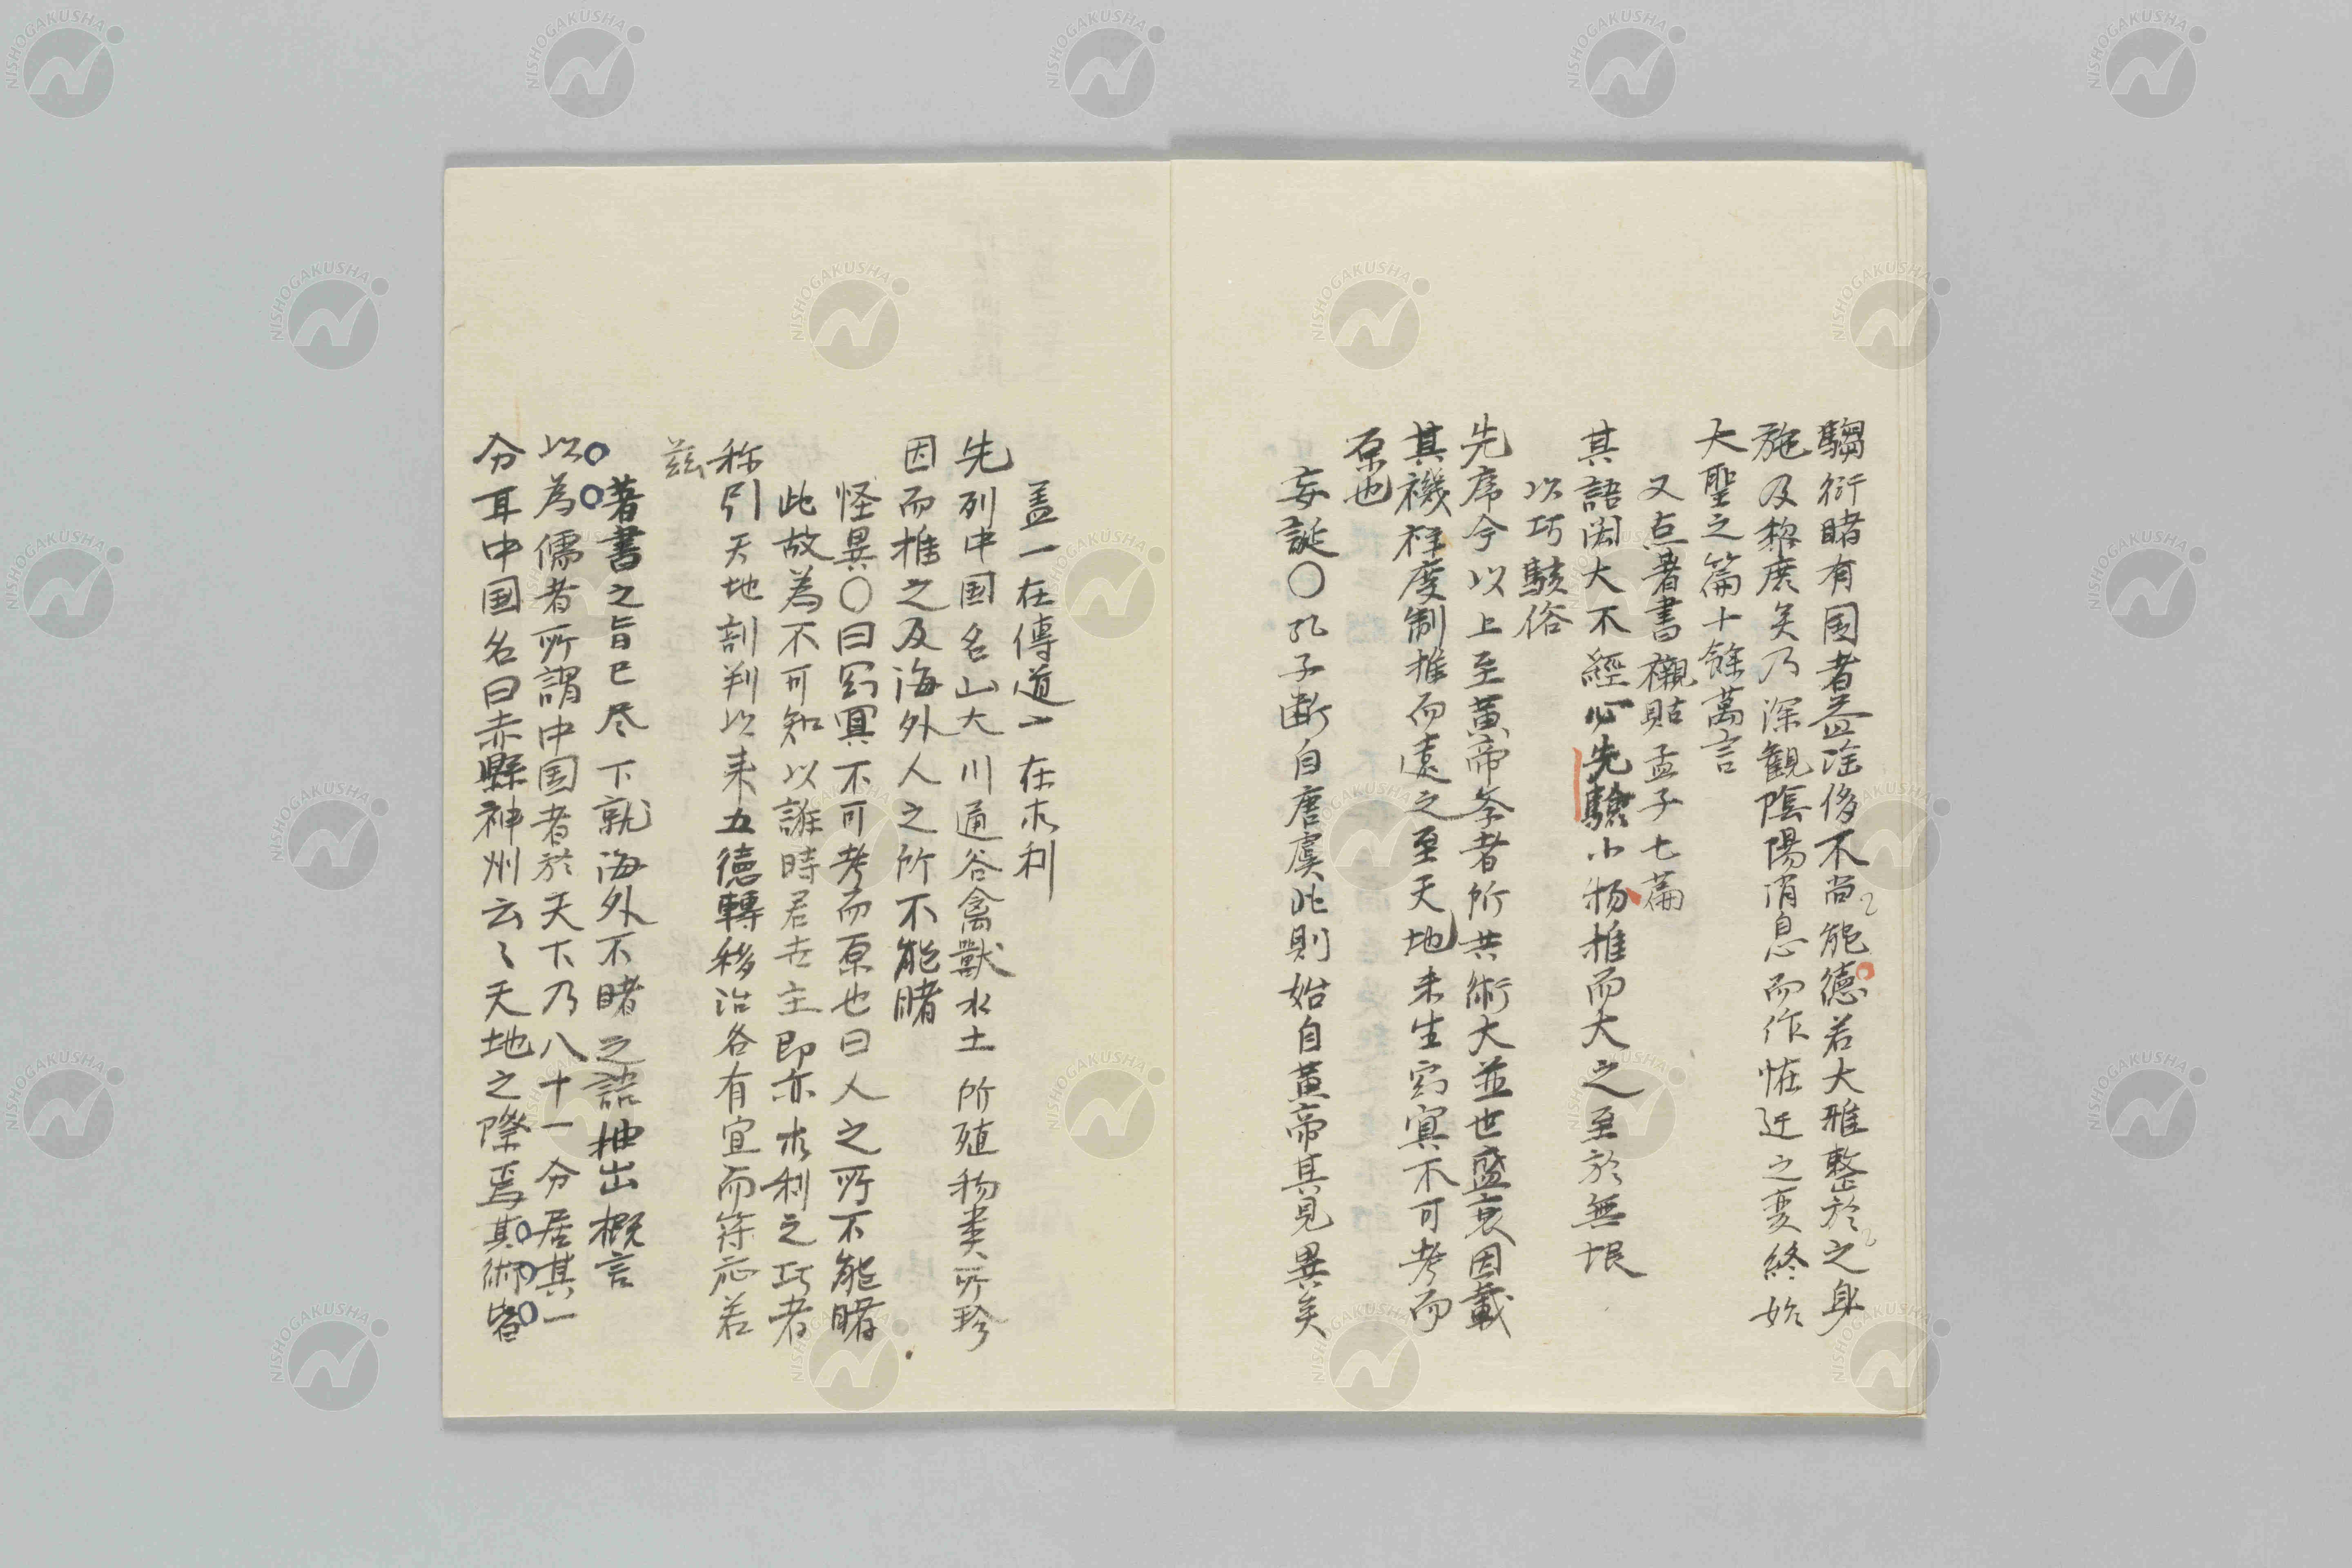 騶衍睹有国者益淫侈不尚能德若大雅整於之身
施及黎庶矣乃深観陰陽消息而作恠迂之変終始
大聖之篇十餘萬言
又点著書襯貼孟子七篇
其語闳大不經必先驗小物推而大之至於無垠
以巧駭俗
先序今以上至黄帝学者所共術大並世盛衰因載
其禨祥度制推而遠之至天地未生窈冥不可考而
原也
妄誕〇孔子断自唐虞此則始自黄帝其見異矣
盖一在傳道一在求利
先列中国名山大川通谷禽獸水土所殖物类所珍
因而推之及海外人之所不能睹
怪異〇曰窈冥不可考而原也曰人之所不能睹
此故為不可知以誑時君世主即亦求利之巧者
称引天地剖判以来五德轉移治各有宜而苻応若
茲
著書之旨已尽下就海外不睹之語抽出概言
以為儒者所謂中国者於天下乃八十一分居其一
分耳中国名曰赤縣神州云〻天地之際焉其術皆
NISHOGAKUSHA